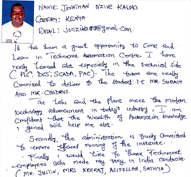 NAME: JONATHAN NZIVE KALAO
COUNTRY: KENYA
EMAIL:
It has been a great opportunity to come and
learn in Technocrat Automation Centre. I have
really learned alot especially in the technical side
(PLC DCS, SCADA, PAC). The tutors are really
committed to deliver to the student i.e MR SUSHANT
AND MR.
The labs and the place meets the modern
technology advancement in today industry. I am
confident that the wealth of Automation knowledge
gained will help me alot.
Secondly, the administration is greatly committed
to ensure efficient running of the institute.
Finally I would like to thank Technocrat
employees who made my stay in India conducive